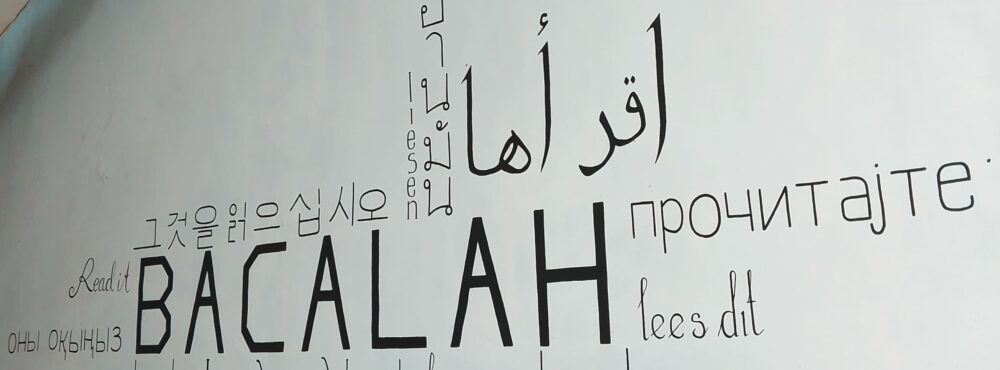 اقرأها
lesen
อ่านมัน
그것을 읽으십시오
прочитајте
Read it
BACALAH
lees dit
оны оқыңыз